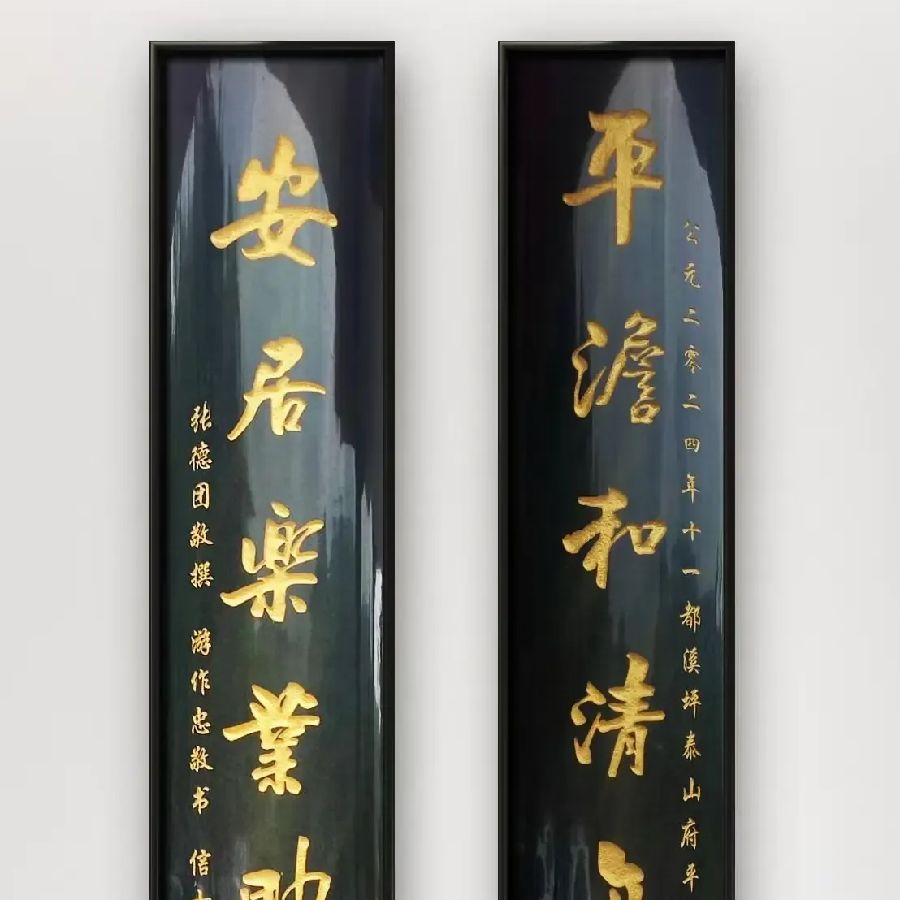 公元二零二四年十一都溪坪泰山府平
平澹和清
安居楽業
张德团敬撰 游作忠敬书 信